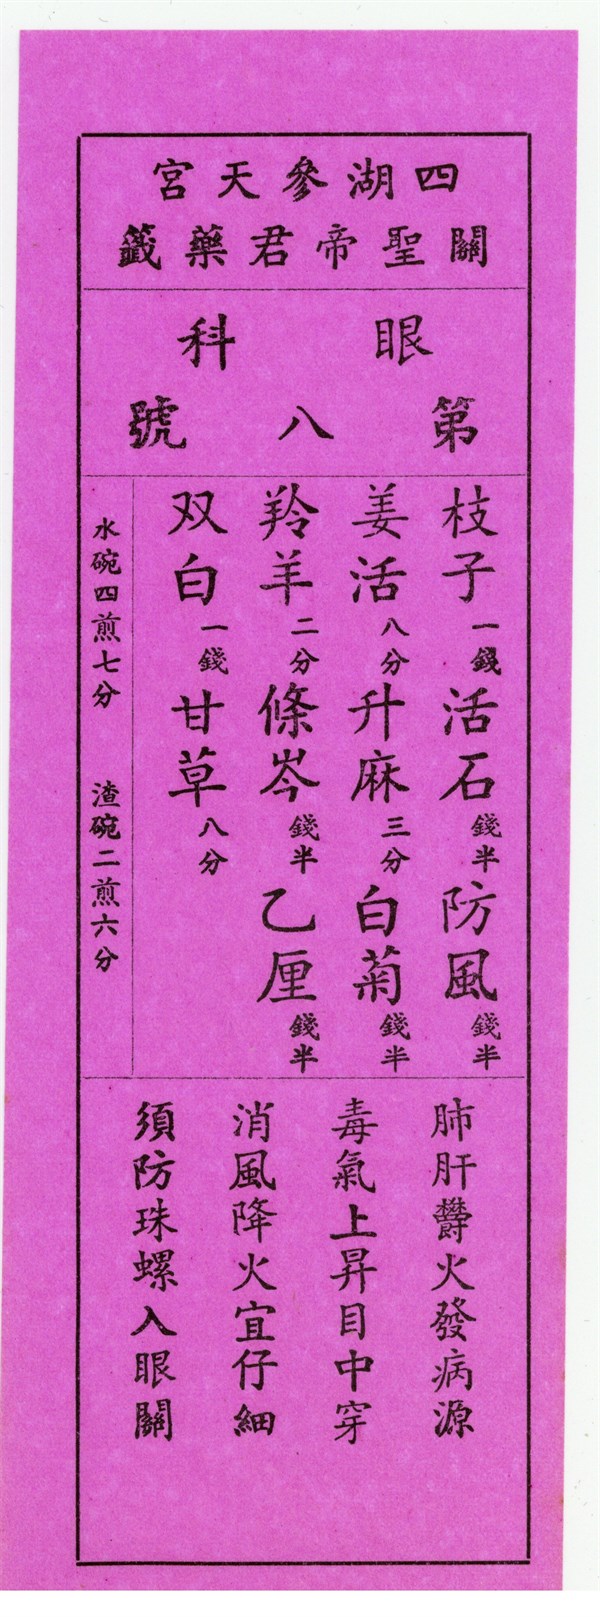 四湖參天宮
關聖帝君藥籤
眼科
第八號
枝子一錢活石錢半防風錢半
姜活八分升麻三分白菊錢半
羚羊二分條岑錢半乙厘錢半
双白一錢甘草八分
水碗四煎七分 渣碗二煎六分
肺肝欝火發病源
毒氣上昇目中穿
消風降火宜仔細
須防珠螺入眼關